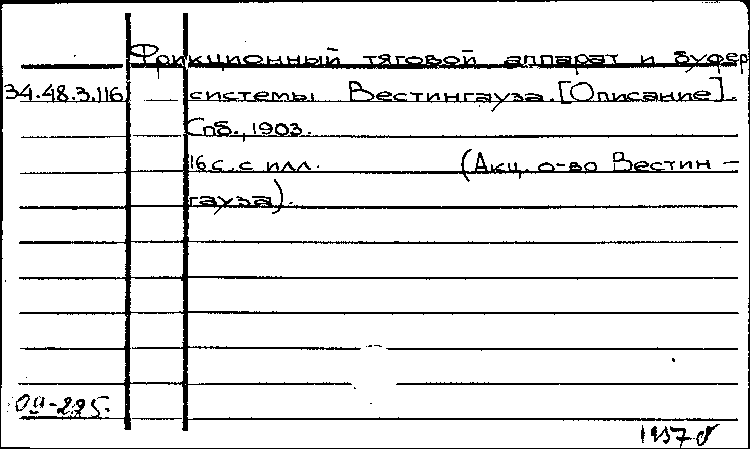 Фрикционный тяговой аппарат и буфер
34.48.3.116 системы Вестингауза. [Описание].
Спб., 1903.
16 с. с илл. (Акц. о-во Вестин-
гауза).
1957